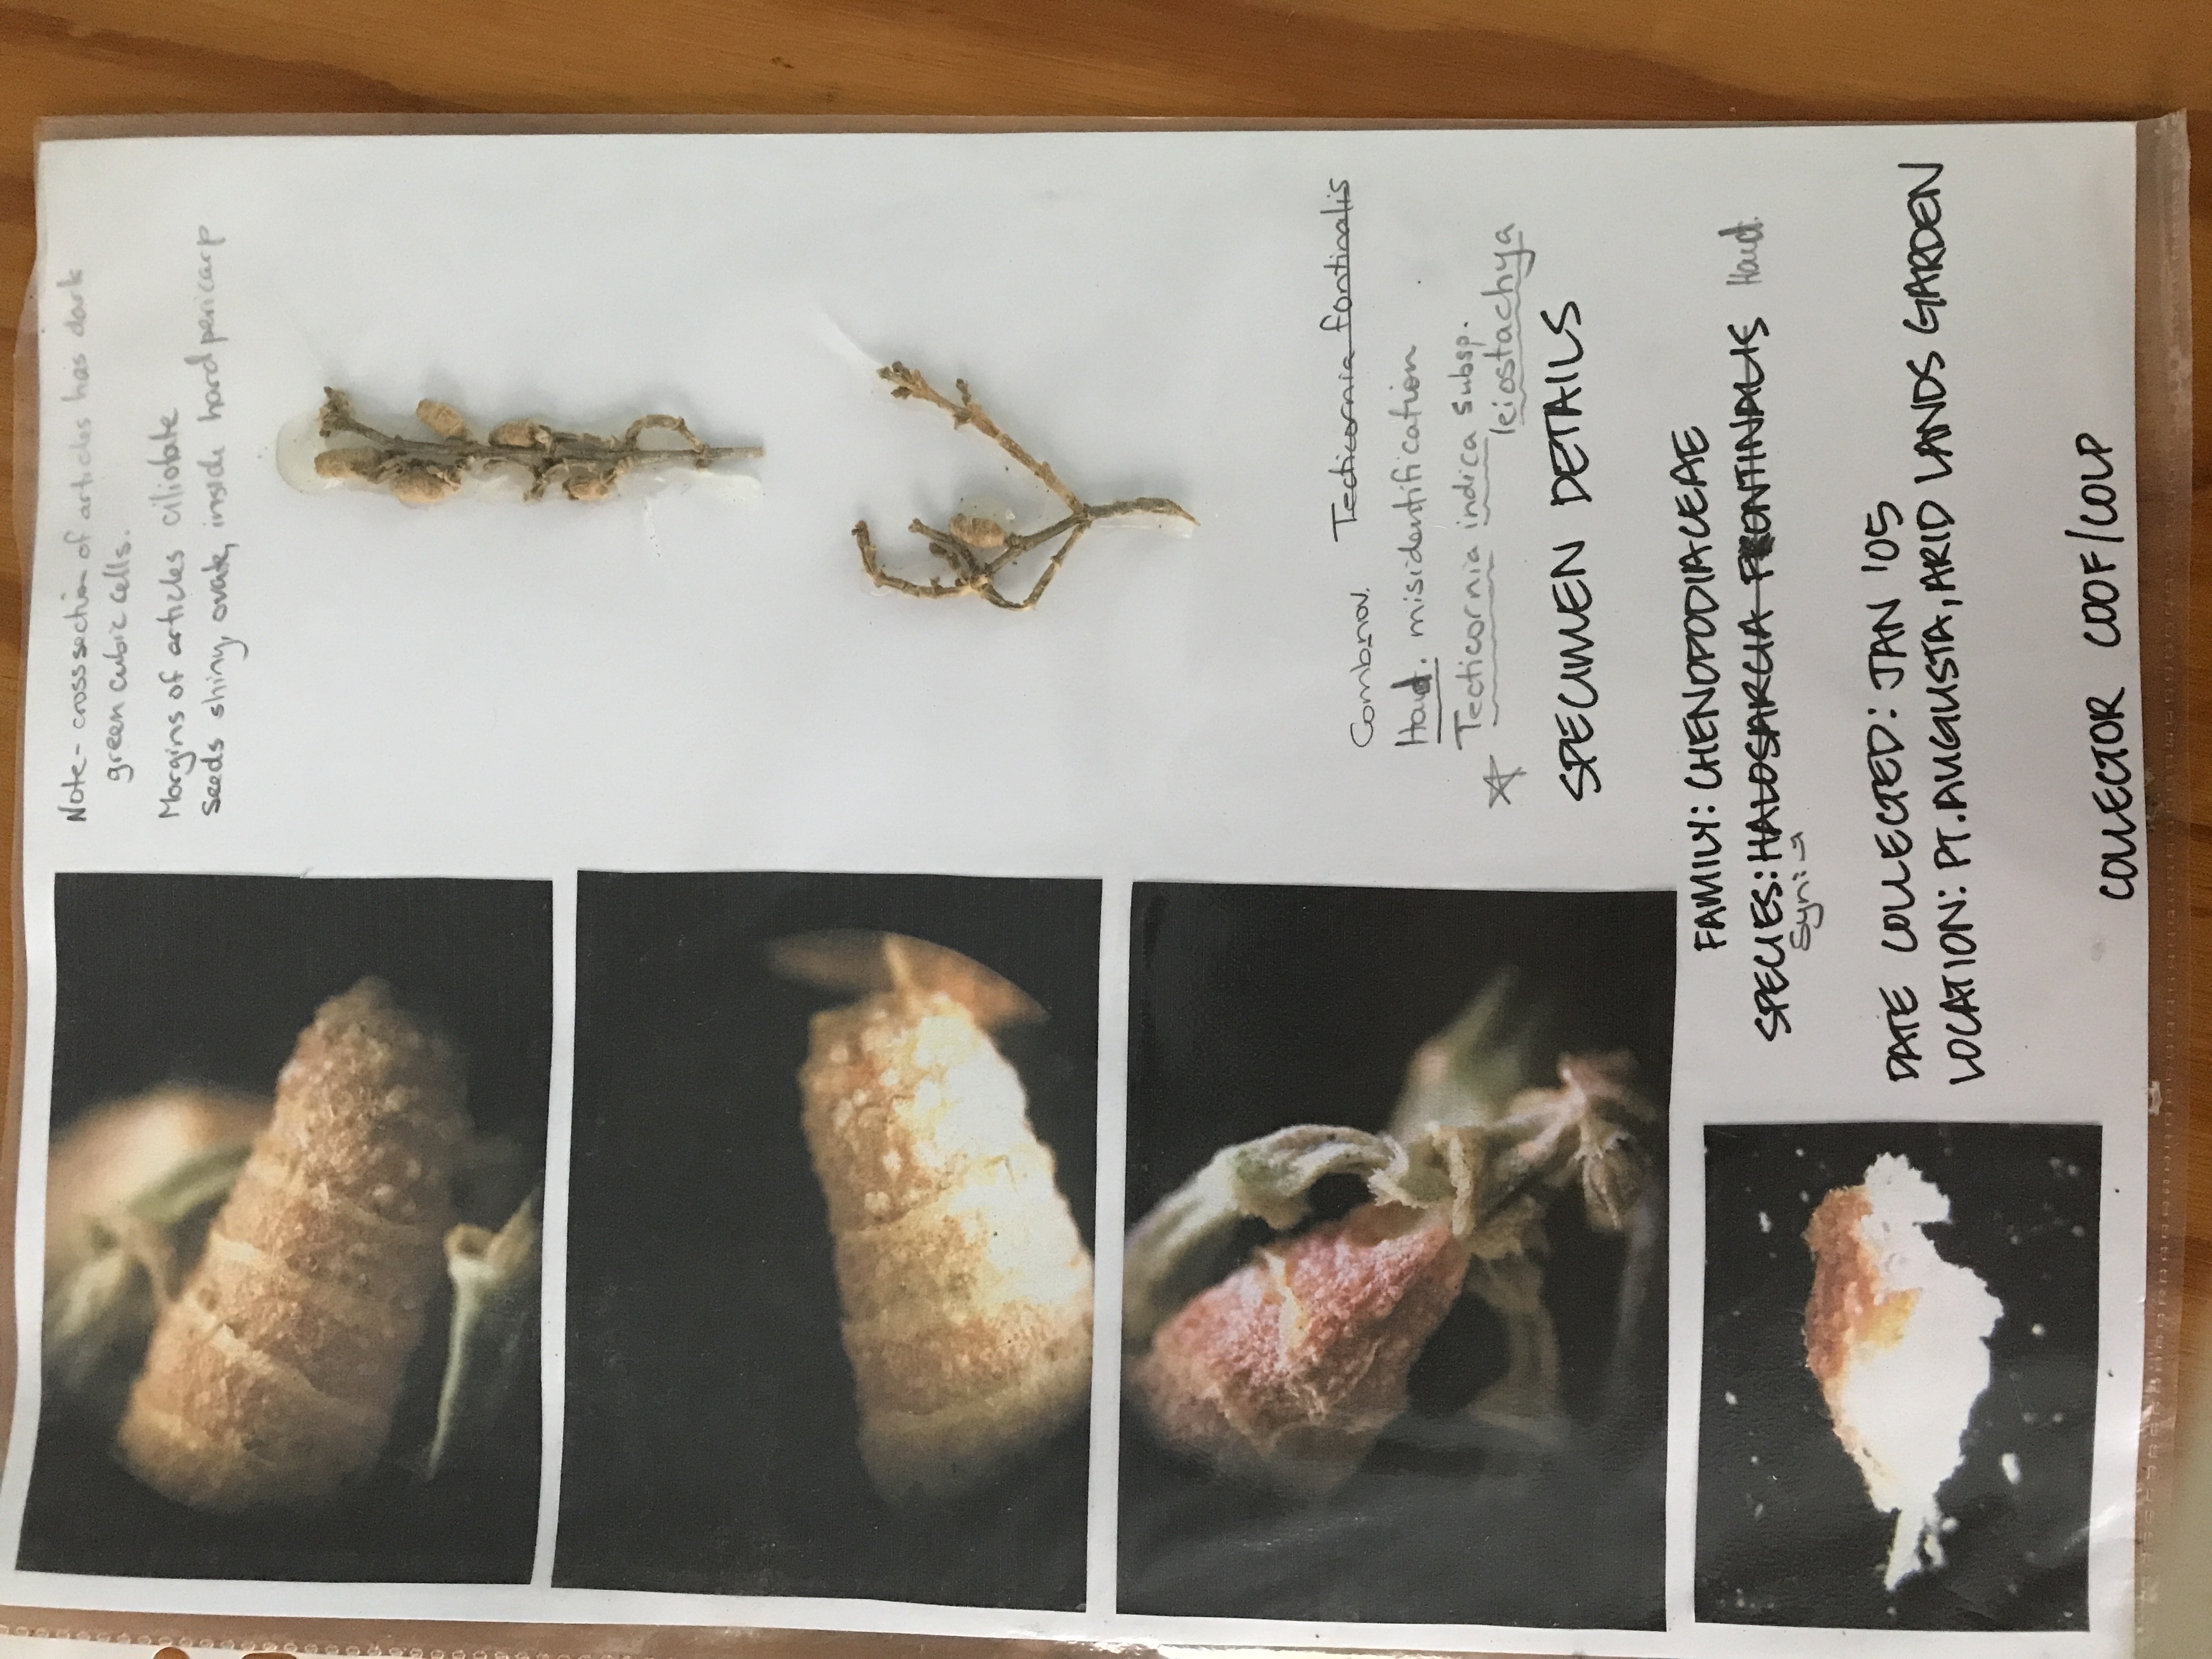 Note - cross section of articles has dark
green cubic cells.
Margins of articles ciliolate
Seeds shiny, ovate, inside hard pericarp
Comb.nov. Tecticornia fontinalis
misidentification
Tecticornia indica subsp.
leiostachya
SPECIMEN DETAILS
FAMILY: CHENOPODIACEAE
SPECIES: HALOSARCIA FONTINALIS
Syn:
DATE COLLECTED: JAN '05
LOCATION: PT. AUGUSTA, ARID LANDS GARDEN
COLLECTOR COOF/COLP